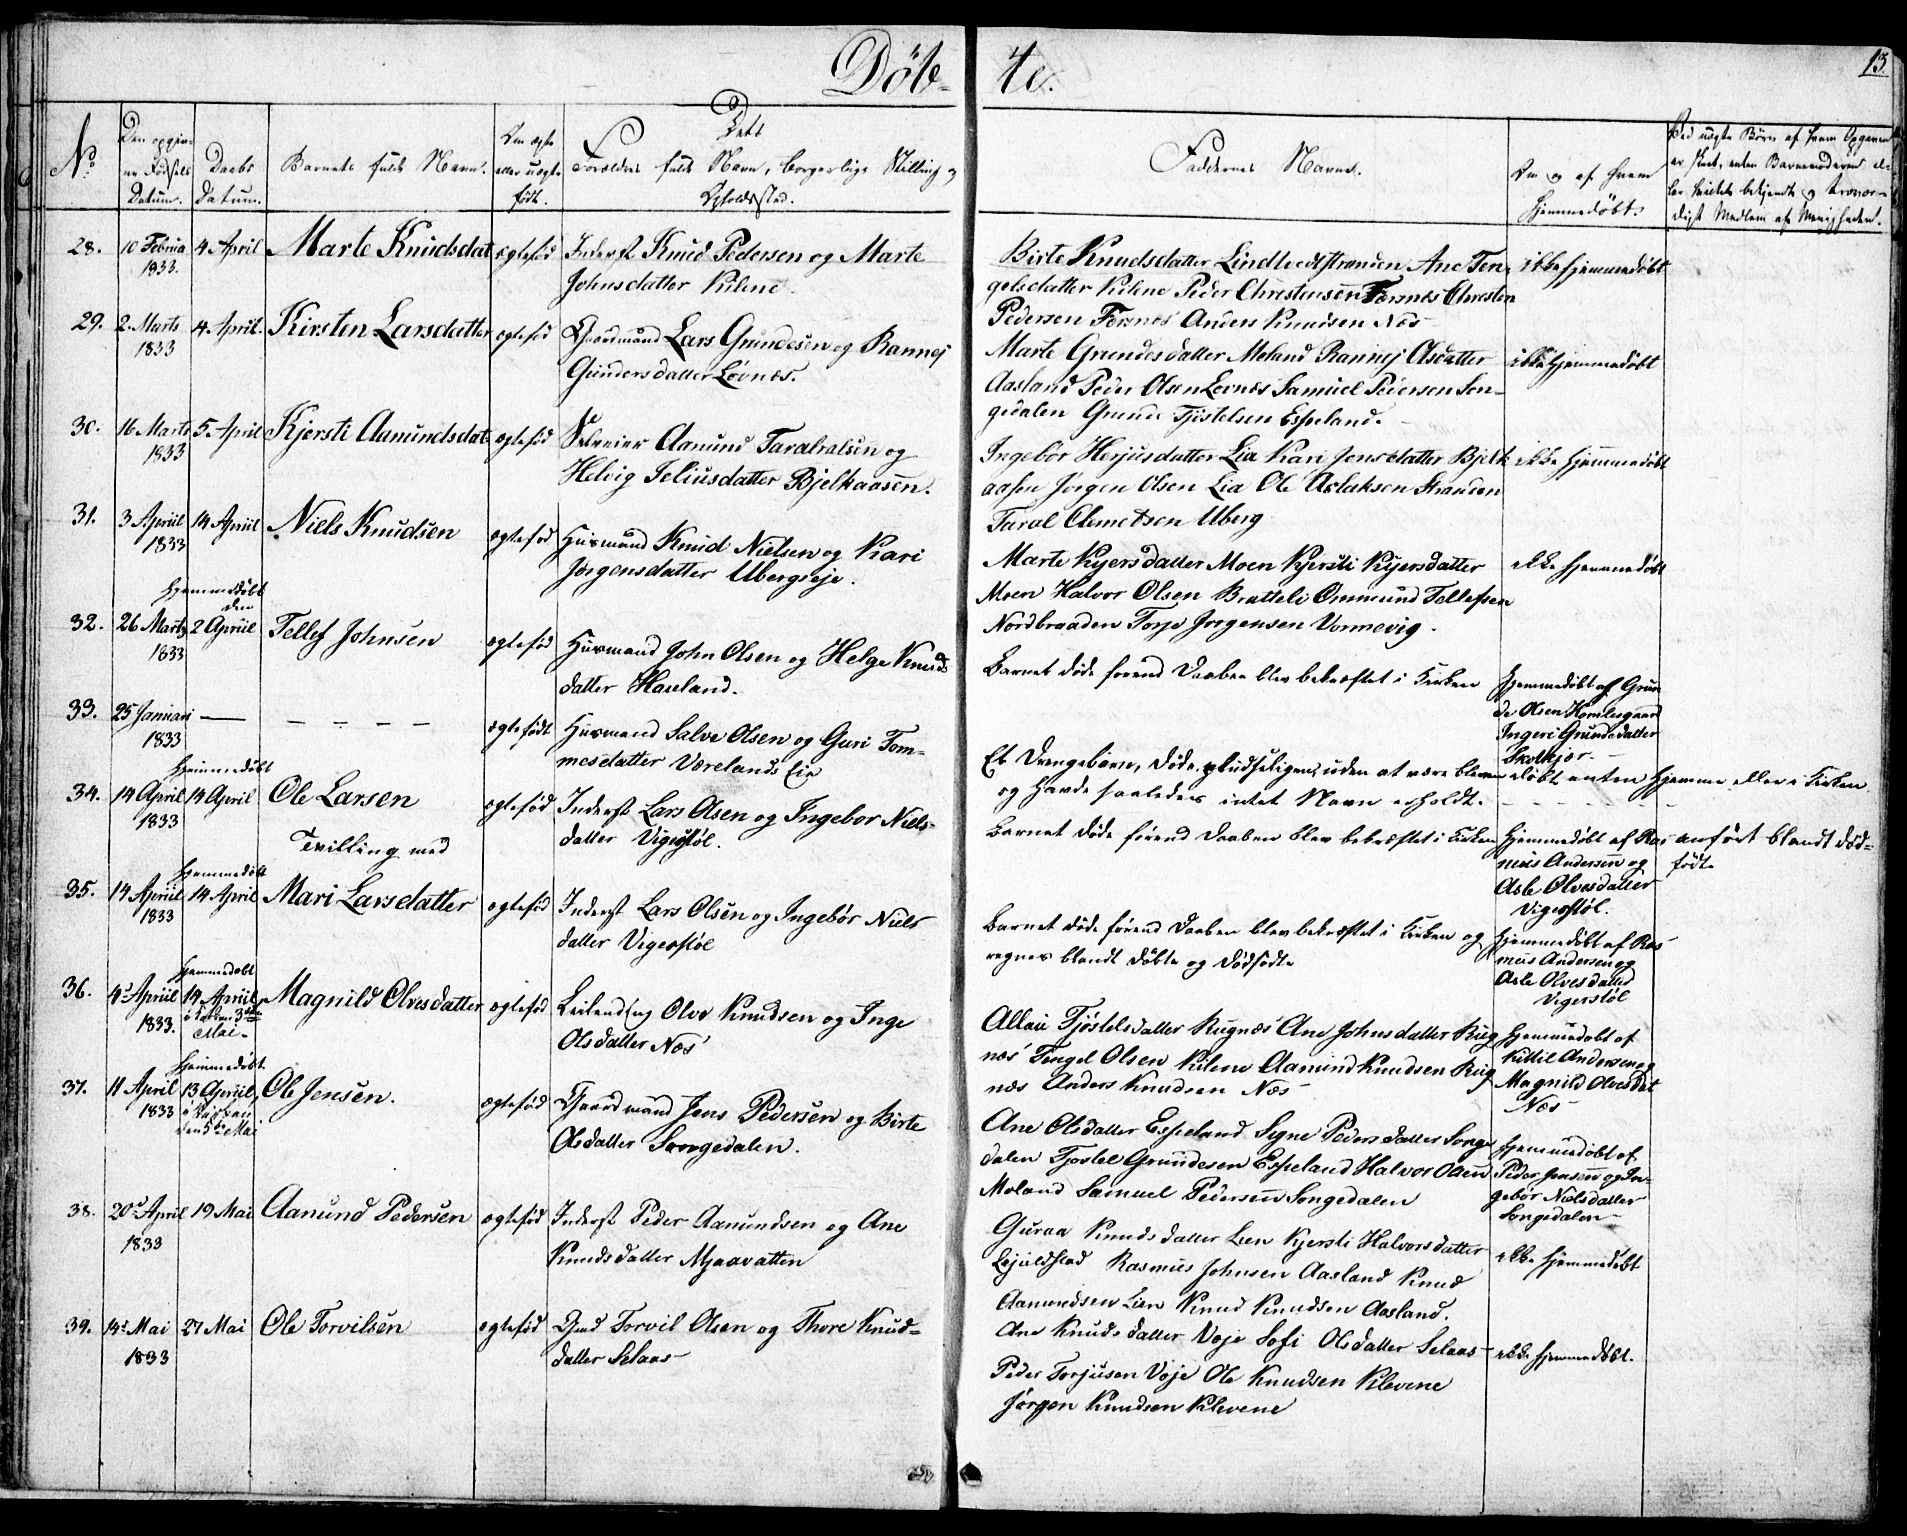 Döb-
te.
13.
No.
Den opgiv-
ne Fødsels
Datum.
Daabs
Datum.
Barnets fulde Navn.
Om ægte
eller uægte
født.
Dets
Forældres fulde Navn, borgerlige Stilling og
Opholdssted.
Faddernes Navne.
Om og af hvem
hjemmedøbt.
Ved uægte Børn af hvem Opgaven
er skeet, enten Barnemoderen el-
ler bekjendt og troevær-
digt Medlem af Menigheden.
28.
10 Februa
1833.
4 April
Marte Knudsdat
ægtefød
Inderst Knud Pedersen og Marte
Johnsdatter Kilene.
Birte Knudsdatter Lindtvedtstranden Ane Ten-
gelsdatter Kilene Peder Christensen Fosnæs Christen
Pedersen Fosnæs Anders Knudsen Næs
ikke hjemmedøbt
29.
2. Marts
1833
4. April.
Kirsten Larsdatter
ægtefød
Gaardmand Lars Grundesen og Rannej
Gundersdatter Løvnæs.
Marte Grundesdatter Moland Rannej Olsdatter
Aasland Peder Olsen Løvnæs Samuel Pedersen Son-
gedalen Grunde Tjøstelsen Espeland.
ikke hjemmedøbt
30.
16 Marts
1833
5. April
Kjersti Aamundsdat.
ægtefød
Selveier Aamund Taraldsen og
Helvig Teliusdatter Bjelkaasen.
Ingebor Herjusdatter Lia Kari Jensdatter Bjelk
aasen Jørgen Olsen Lia Ole Aslaksen Stranden
Taral Clemetsen Uberg
ikke hjemmedøbt
31.
3 April
1833
14 April
Niels Knudsen
ægtefød
Husmand Knud Nielsen og Kari
Jørgensdatter Ubergseje.
Marte Kjersdatter Moen Kjersti Kjersdatter
Moen Halvor Olsen Bratteli Ommund Tellefsen
Nordbraaden Torje Jørgensen Vormevig.
ikke hjemmedøbt
32.
26 Marts
1833
hjemmedøbt
den
2 April
Tellef Johnsen
ægtefød
Husmand John Olsen og Helge Knuds
datter Haseland.
Barnet døde førend Daaben blev bekræftet i Kirken
hjemmedøbt af Grun
de Olsen Homlesgaard
Ingeri Grundedatter
Skolkjær.
33.
25 Januari
1833
— — — — —
ægtefødt
Husmand Salve Olsen og Guri Tom-
mesdatter Værelands Eie
Et Drengebarn, døde pludseligen, uden at være bleven døbt enten hjemme eller i Kirken
og havde saaledes intet Navn erholdt.
34.
14 April
1833
hjemmedøbt
14 April
Ole Larsen
Tvilling med
ægtefød
Inderst Lars Olsen og Ingebor Niels-
datter Vigerstøl.
Barnet døde førend Daaben blev bekræftet i Kirken
hjemmedøbt af Ras-
mus Andersen og
Asle Olvesdatter
Vigerstøl.
anført blandt død-
fødte
35.
14 April
1833
hjemmedøbt
14 April
Mari Larsdatter
ægtefød
Inderst Lars Olsen og Ingebør Niels
datter Vigerstøl
Barnet døde førend Daaben blev bekræftet i Kirken og
regnes blandt døbte og dødfødte
hjemmedøbt af Ras-
mus Andersen og
Asle Olvesdatter
Vigerstøl
36.
4de April
1833.
hjemmedøbt
14 April
i Kirken 3die
Mai-
Magnild Olvesdatter
ægtefød
Leilending Olve Knudsen og Inge
Olsdatter Næs
Allau Tjøstelsdatter Rugnæs Ane Johnsdatter Rug
næs Tengel Olsen Kilene Aamund Knudsen Rug
næs Anders Knudsen Næs
hjemmedøbt af
Kittil Andersen og
Magnild Olvesdat
Næs
37.
11 April
1833
hjemmedøbt
13 April,
i Kirken
den 5te Mai
Ole Jensen.
ægtefød
Gaardmand Jens Pedersen og Birte
Olsdatter Songedalen.
Ane Olsdatter Espeland Signe Pedersdatter Songe
dalen Tjøstel Grundesen Espeland Halvor Olsen
Moland Samuel Pedersen Songedalen
hjemmedøbt af
Peder Jensen og In-
gebør Nielsdatter
Songedalen
38.
20de April
1833
19 Mai
Aanund Pedersen
ægtefød
Inderst Peder Aanundsen og Ane
Knudsdatter Mjaavatten
Guraa Knudsdatter Lien Kjersti Halvorsdatter
Rasmus Johnsen Aasland Knud
Aamundsen Lien Knud Knudsen Aasland.
ikke hjemmedøbt
39.
14de Mai
1833
27 Mai
Ole Torvilsen
ægtefød
Gmd Torvil Olsen og Thore Knud-
datter Selaas
Ane Knudsdatter Voje Sofi Olsdatter Selaas
Peder Torjusen Voje Ole Knudsen Klevene
Jørgen Knudsen Klevene
ikke hjemmedøbt.